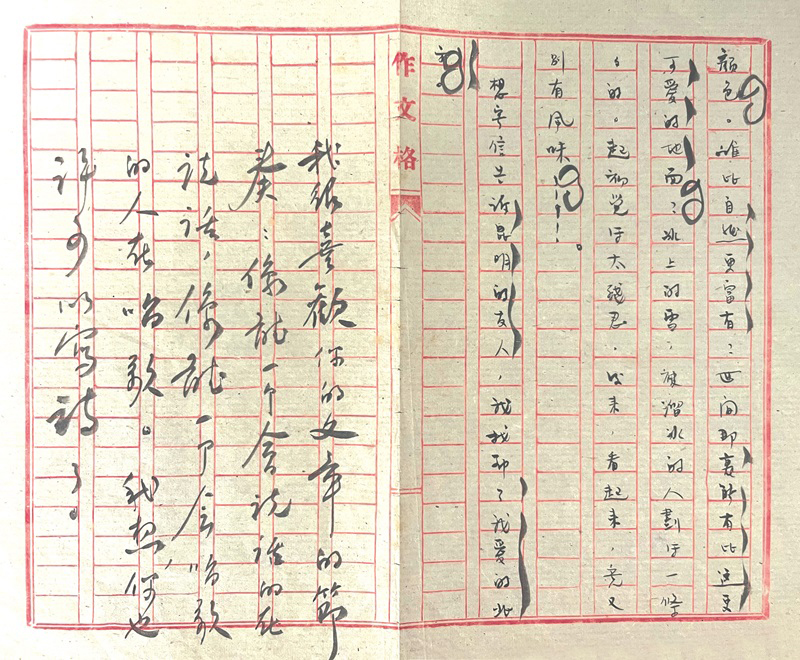 颜色。谁比自然更富有：世间那裏能有比这更
可爱的地面：冰上的雪，被溜冰的人划得一條
々的。起初觉得太残忍。后来，看起来，竟又
别有风味！！！。
想字信告诉昆明的友人，我找到了我爱的北
作文格
我很喜歡你的文章的節
奏：像能一个会说话的在
说话，像能一个会唱歌
的人在唱歌。我想，你也
许可以寫詩了。